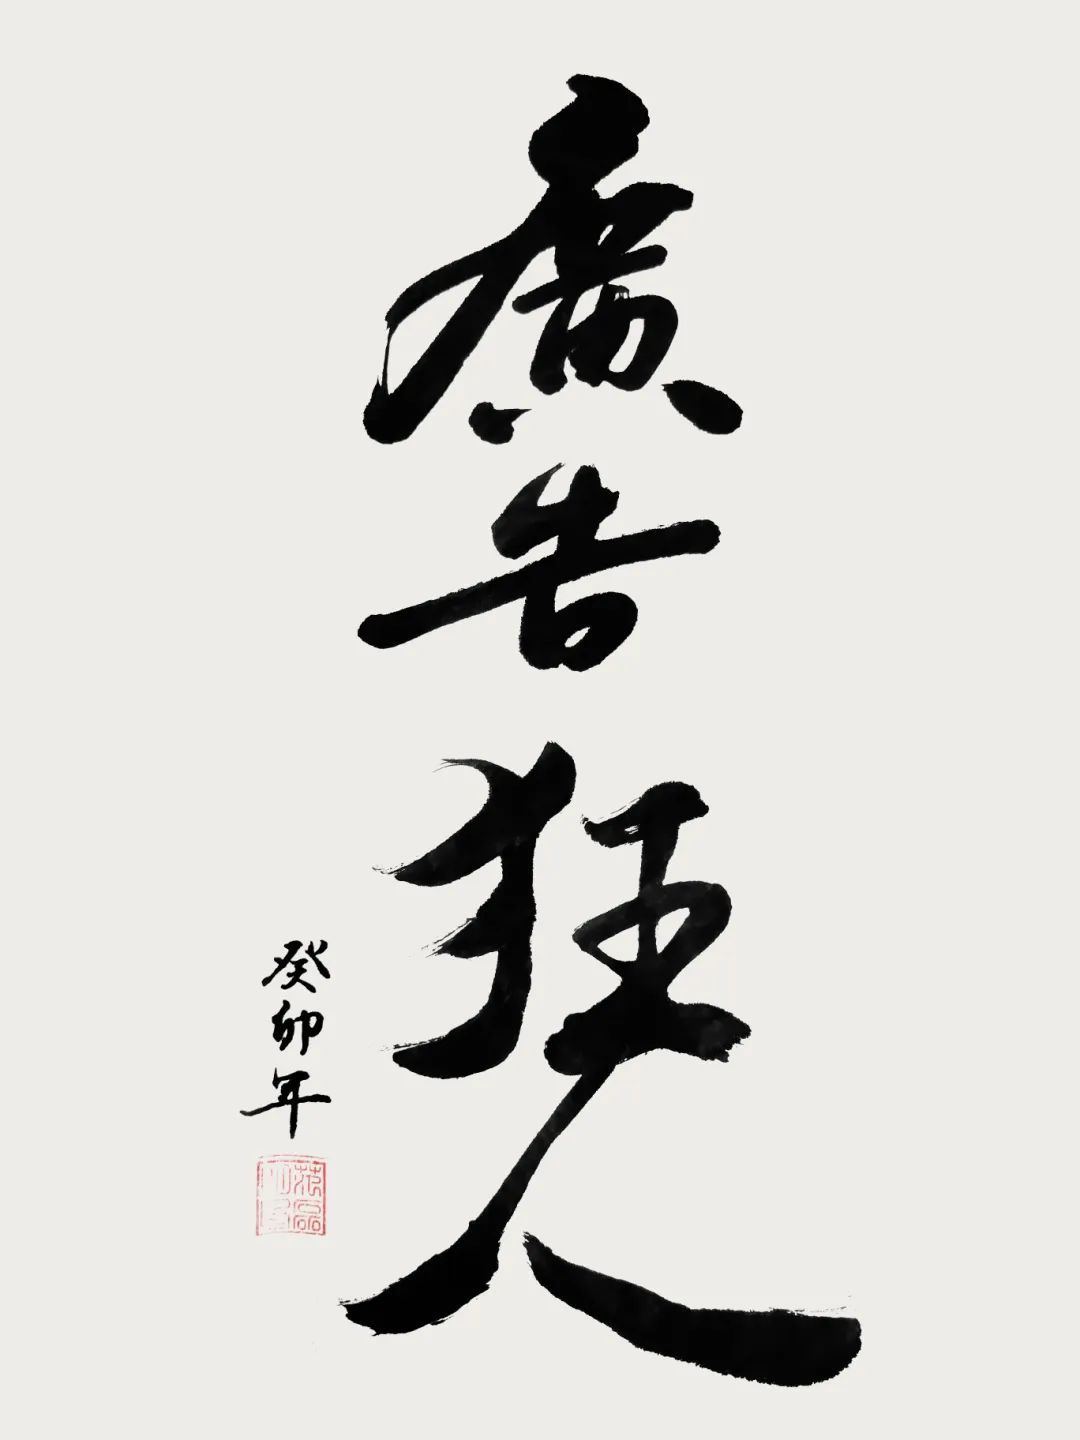 廣告狂人
癸卯年